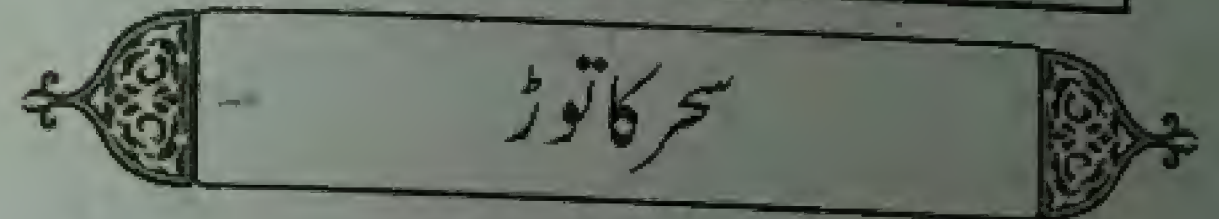 سحر کا توڑ